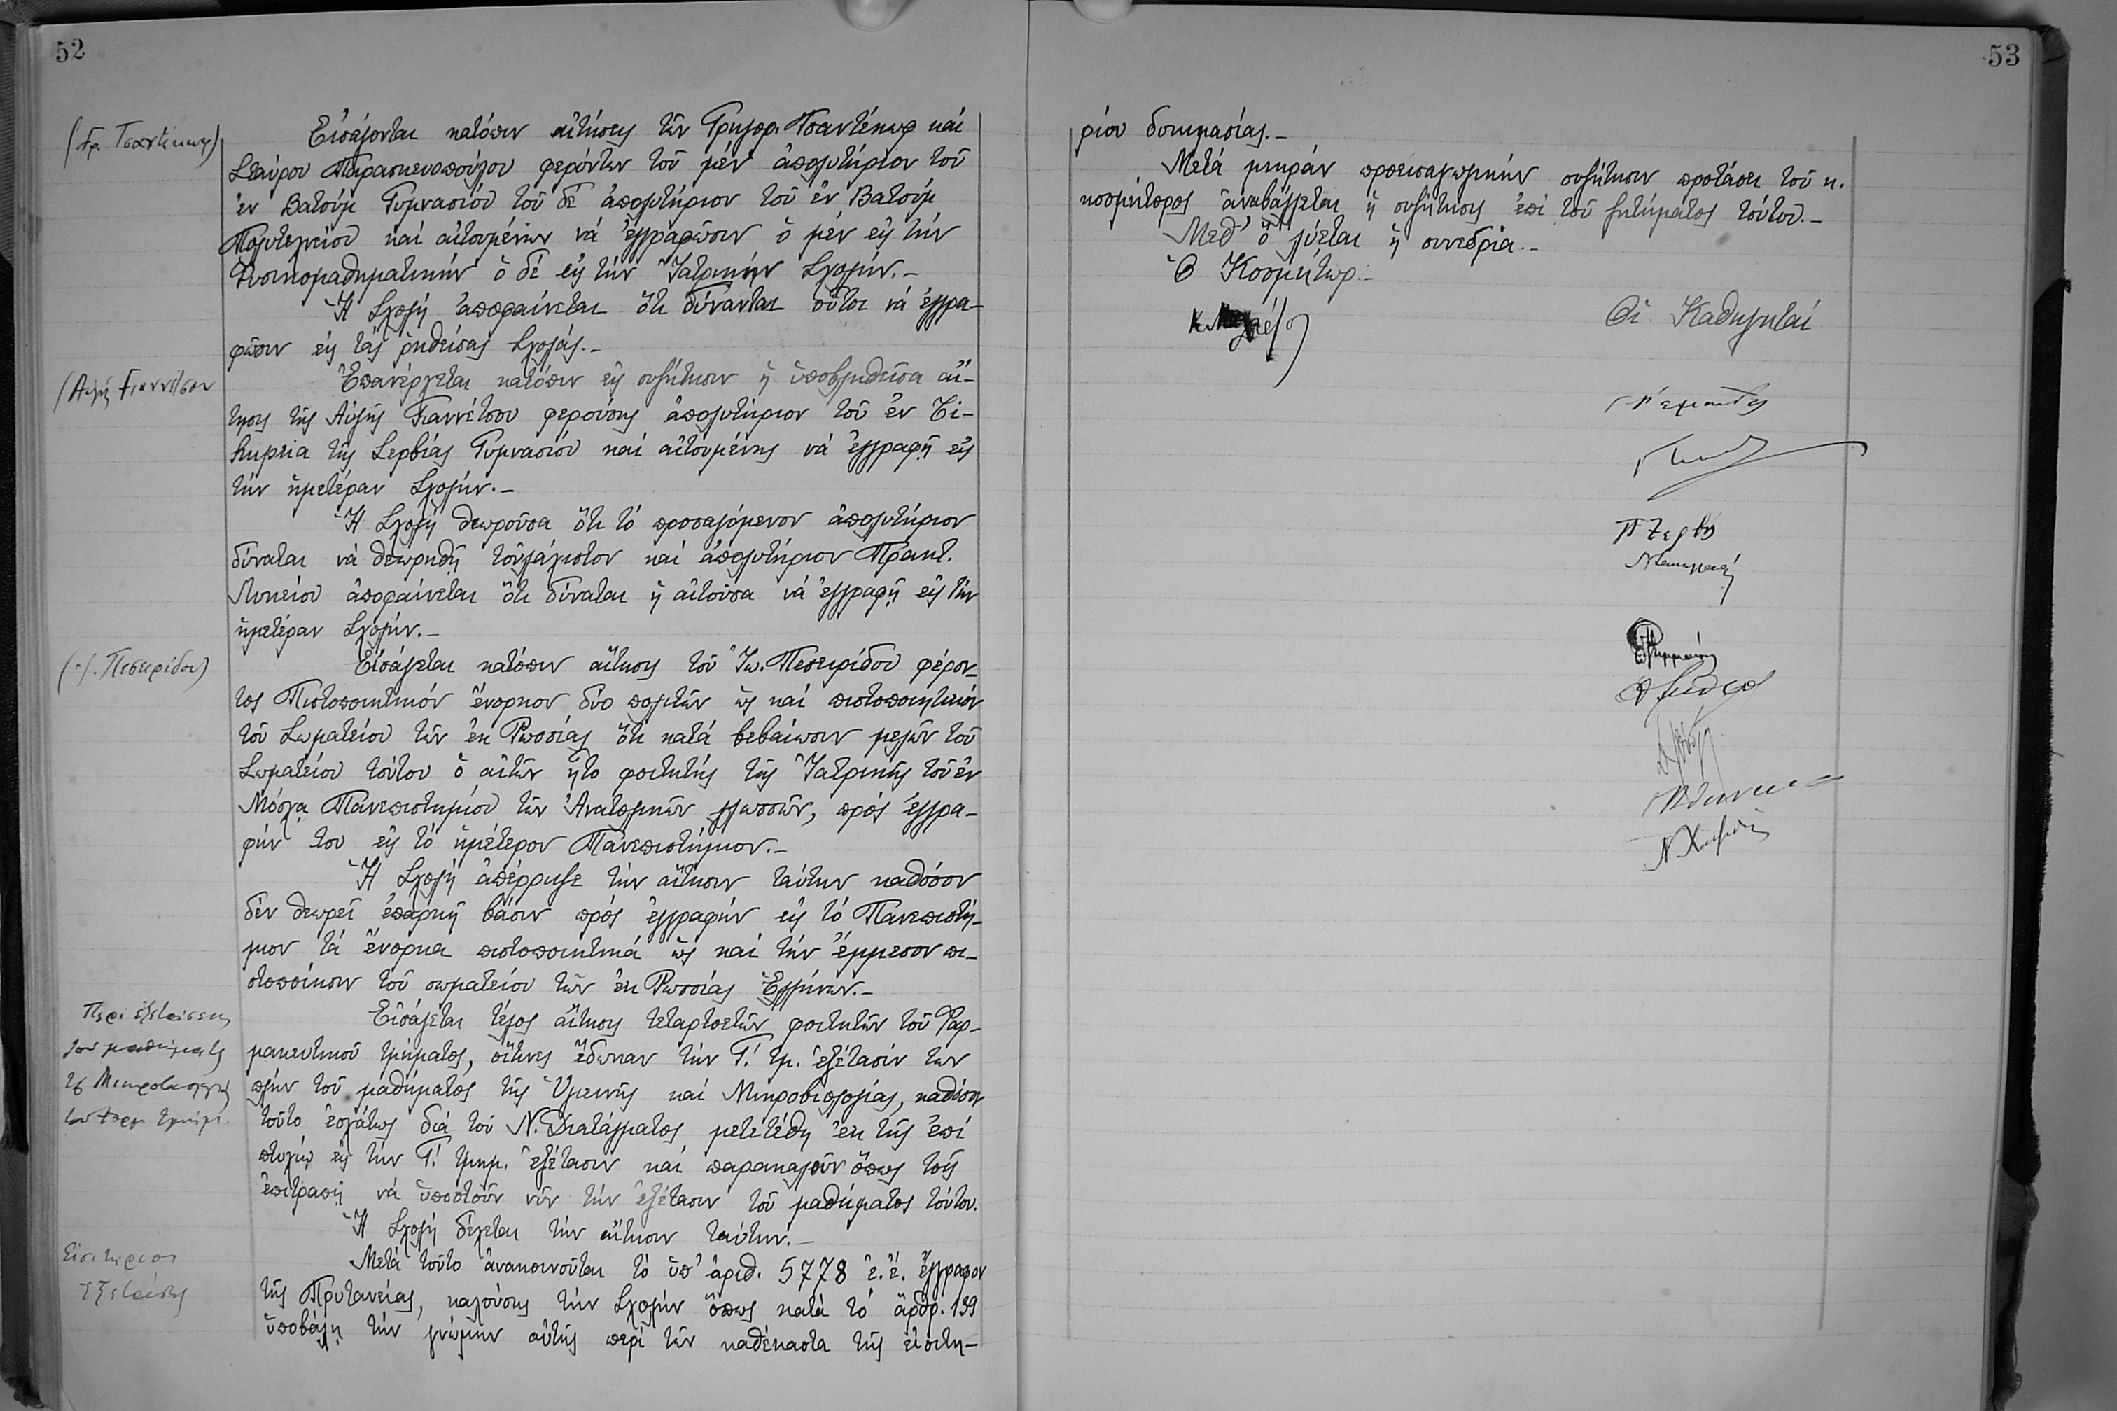 52
(Γρ. Τσαντέκωφ)
Εἰσάγονται κατόπιν αἰτήσεις τῶν Γρηγορ. Τσαντέκωφ καί
Σταύρου Παρασκευοπούλου φερόντων τοῦ μέν ἀπολυτήριον τοῦ
ἐν Βατούμ Γυμνασίου τοῦ δέ ἀπολυτήριον τοῦ ἐν Βατούμ
Πολυτεχνείου καί αἰτουμένων νά ἐγγραφῶσιν ὁ μέν εἰς τήν
Φυσικομαθηματικήν ὁ δέ εἰς τήν Ἰατρικήν Σχολήν.—
Ἡ Σχολή ἀποφαίνεται ὅτι δύνανται οὗτοι νά ἐγγρα-
φῶσιν εἰς τάς ῥηθείσας Σχολάς.—
(Αὐγῆς Γιαννέτσου
Ἐπανέρχεται κατόπιν εἰς συζήτησιν ἡ ὑποβληθεῖσα αἴ-
τησις τῆς Αὐγῆς Γιαννέτσου φερούσης ἀπολυτήριον τοῦ ἐν
τῆς Σερβίας Γυμνασίου καί αἰτουμένης νά ἐγγραφῇ εἰς
τήν ἡμετέραν Σχολήν.—
Ἡ Σχολή θεωροῦσα ὅτι τό προσαγόμενον ἀπολυτήριον
δύναται νά θεωρηθῇ τοὐλάχιστον καί ἀπολυτήριον Πρακτ.
Λυκείου ἀποφαίνεται ὅτι δύναται ἡ αἰτοῦσα νά ἐγγραφῇ εἰς τήν
ἡμετέραν Σχολήν.—
Πεσιρίδου)
Εἰσάγεται κατόπιν αἴτησις τοῦ Ἰω. Πεσιρίδου φέρον-
τος Πιστοποιητικόν ἔνορκον δύο πολιτῶν ὡς καί πιστοποιητικόν
τοῦ Σωματείου τῶν ἐκ Ρωσσίας ὅτι κατά βεβαίωσιν μελῶν τοῦ
Σωματείου τούτου ὁ αἰτῶν ἦτο φοιτητής τῆς Ἰατρικῆς τοῦ ἐν
Μόσχᾳ Πανεπιστημίου τῶν Ἀνατολικῶν γλωσσῶν, πρός ἐγγρα-
φήν του εἰς τό ἡμέτερον Πανεπιστήμιον.—
Ἡ Σχολή ἀπέρριψε τήν αἴτησιν ταύτην καθόσον
δέν θεωρεῖ ἐπαρκῆ βάσιν πρός ἐγγραφήν εἰς τό Πανεπιστή-
μιον τά ἔνορκα πιστοποιητικά ὡς καί τήν ἔμμεσον πι-
στοποίησιν τοῦ σωματείου τῶν ἐκ Ρωσσίας Ἑλλήνων.—
Περί ἐξετάσεως
τοῦ μαθήματος
τῆς Μικροβιολογίας
τοῦ Φαρμ. τμήμ.
Εἰσάγεται τέλος αἴτησις τεταρτοετῶν φοιτητῶν τοῦ Φαρ-
μακευτικοῦ τμήματος, οἵτινες ἔδωκαν τήν Γ΄. τμ. ἐξέτασίν των
πλήν τοῦ μαθήματος τῆς Ὑγιεινῆς καί Μικροβιολογίας, καθόσον
τοῦτο ἐσχάτως διά τοῦ Ν. Διατάγματος μετετέθη ἐκ τῆς ἐπί
πτυχίῳ εἰς τήν Γ΄. τμημ. ἐξέτασιν καί παρακαλοῦν ὅπως τοῖς
ἐπιτραπῇ νά ὑποστοῦν νῦν τήν ἐξέτασιν τοῦ μαθήματος τούτου.
Ἡ Σχολή δέχεται τήν αἴτησιν ταύτην.—
Εἰσιτήριοι
ἐξετάσεις
Μετά τοῦτο ἀνακοινοῦται τό ὑπ' ἀριθ. 5778 ἐ.ἔ. ἔγγραφον
τῆς Πρυτανείας, καλούσης τήν Σχολήν ὅπως κατά τό ἄρθρ. 139
ὑποβάλῃ τήν γνώμην αὑτῆς περί τῶν καθέκαστα τῆς εἰσιτη-
53
ρίου δοκιμασίας.—
Μετά μικράν προεισαγωγικήν συζήτησιν προτάσει τοῦ κ.
κοσμήτορος ἀναβάλλεται ἡ συζήτησις ἐπί τοῦ ζητήματος τούτου.—
Μεθ' ὅ λύεται ἡ συνεδρία.—
Ὁ Κοσμήτωρ
Οἱ Καθηγηταί
Π Ζερβός